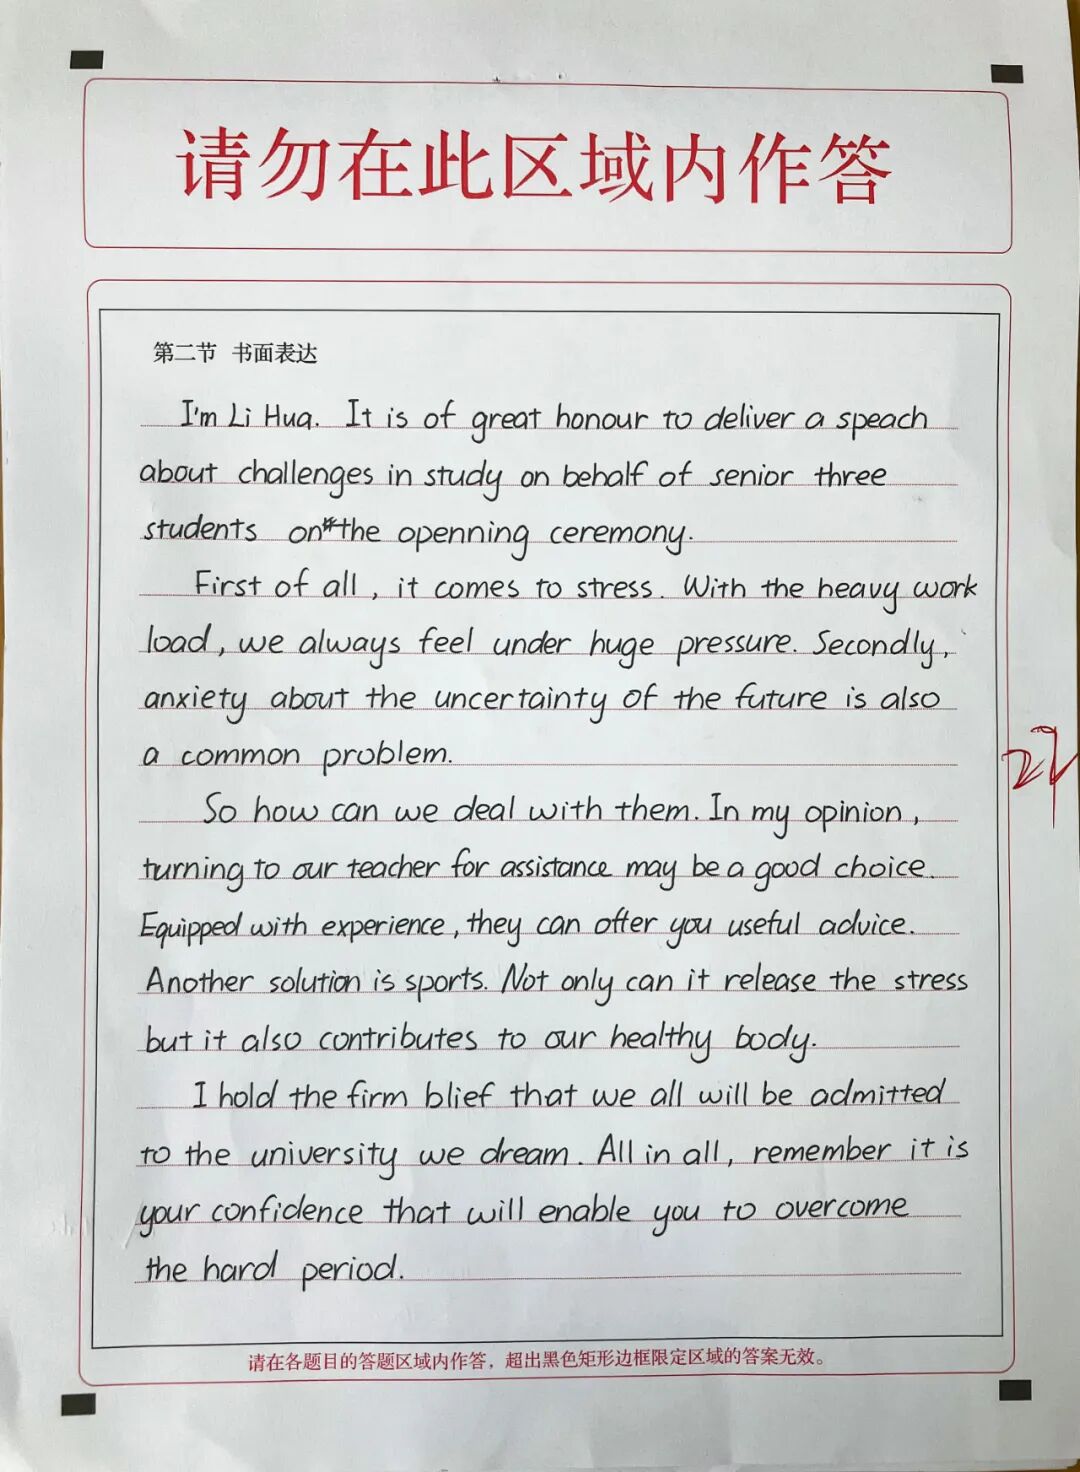 请勿在此区域内作答
第二节 书面表达
I'm Li Hua. It is of great honour to deliver a speach
about challenges in study on behalf of senior three
students on the openning ceremony.
First of all, it comes to stress. With the heavy work
load, we always feel under huge pressure. Secondly,
anxiety about the uncertainty of the future is also
a common problem.
So how can we deal with them. In my opinion,
turning to our teacher for assistance may be a good choice.
Equipped with experience, they can offer you useful advice.
Another solution is sports. Not only can it release the stress
but it also contributes to our healthy body.
I hold the firm blief that we all will be admitted
to the university we dream. All in all, remember it is
your confidence that will enable you to overcome
the hard period.
请在各题目的答题区域内作答，超出黑色矩形边框限定区域的答案无效。